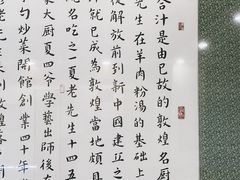 合汁是由已故的敦煌名厨
先生在羊肉粉湯的基础上
從解放前到新中國建立之
就已成為敦煌當地頗具
名吃之一夏老先生十四五
大厨夏四爺學藝出師後
勺炒菜開館創業四十年